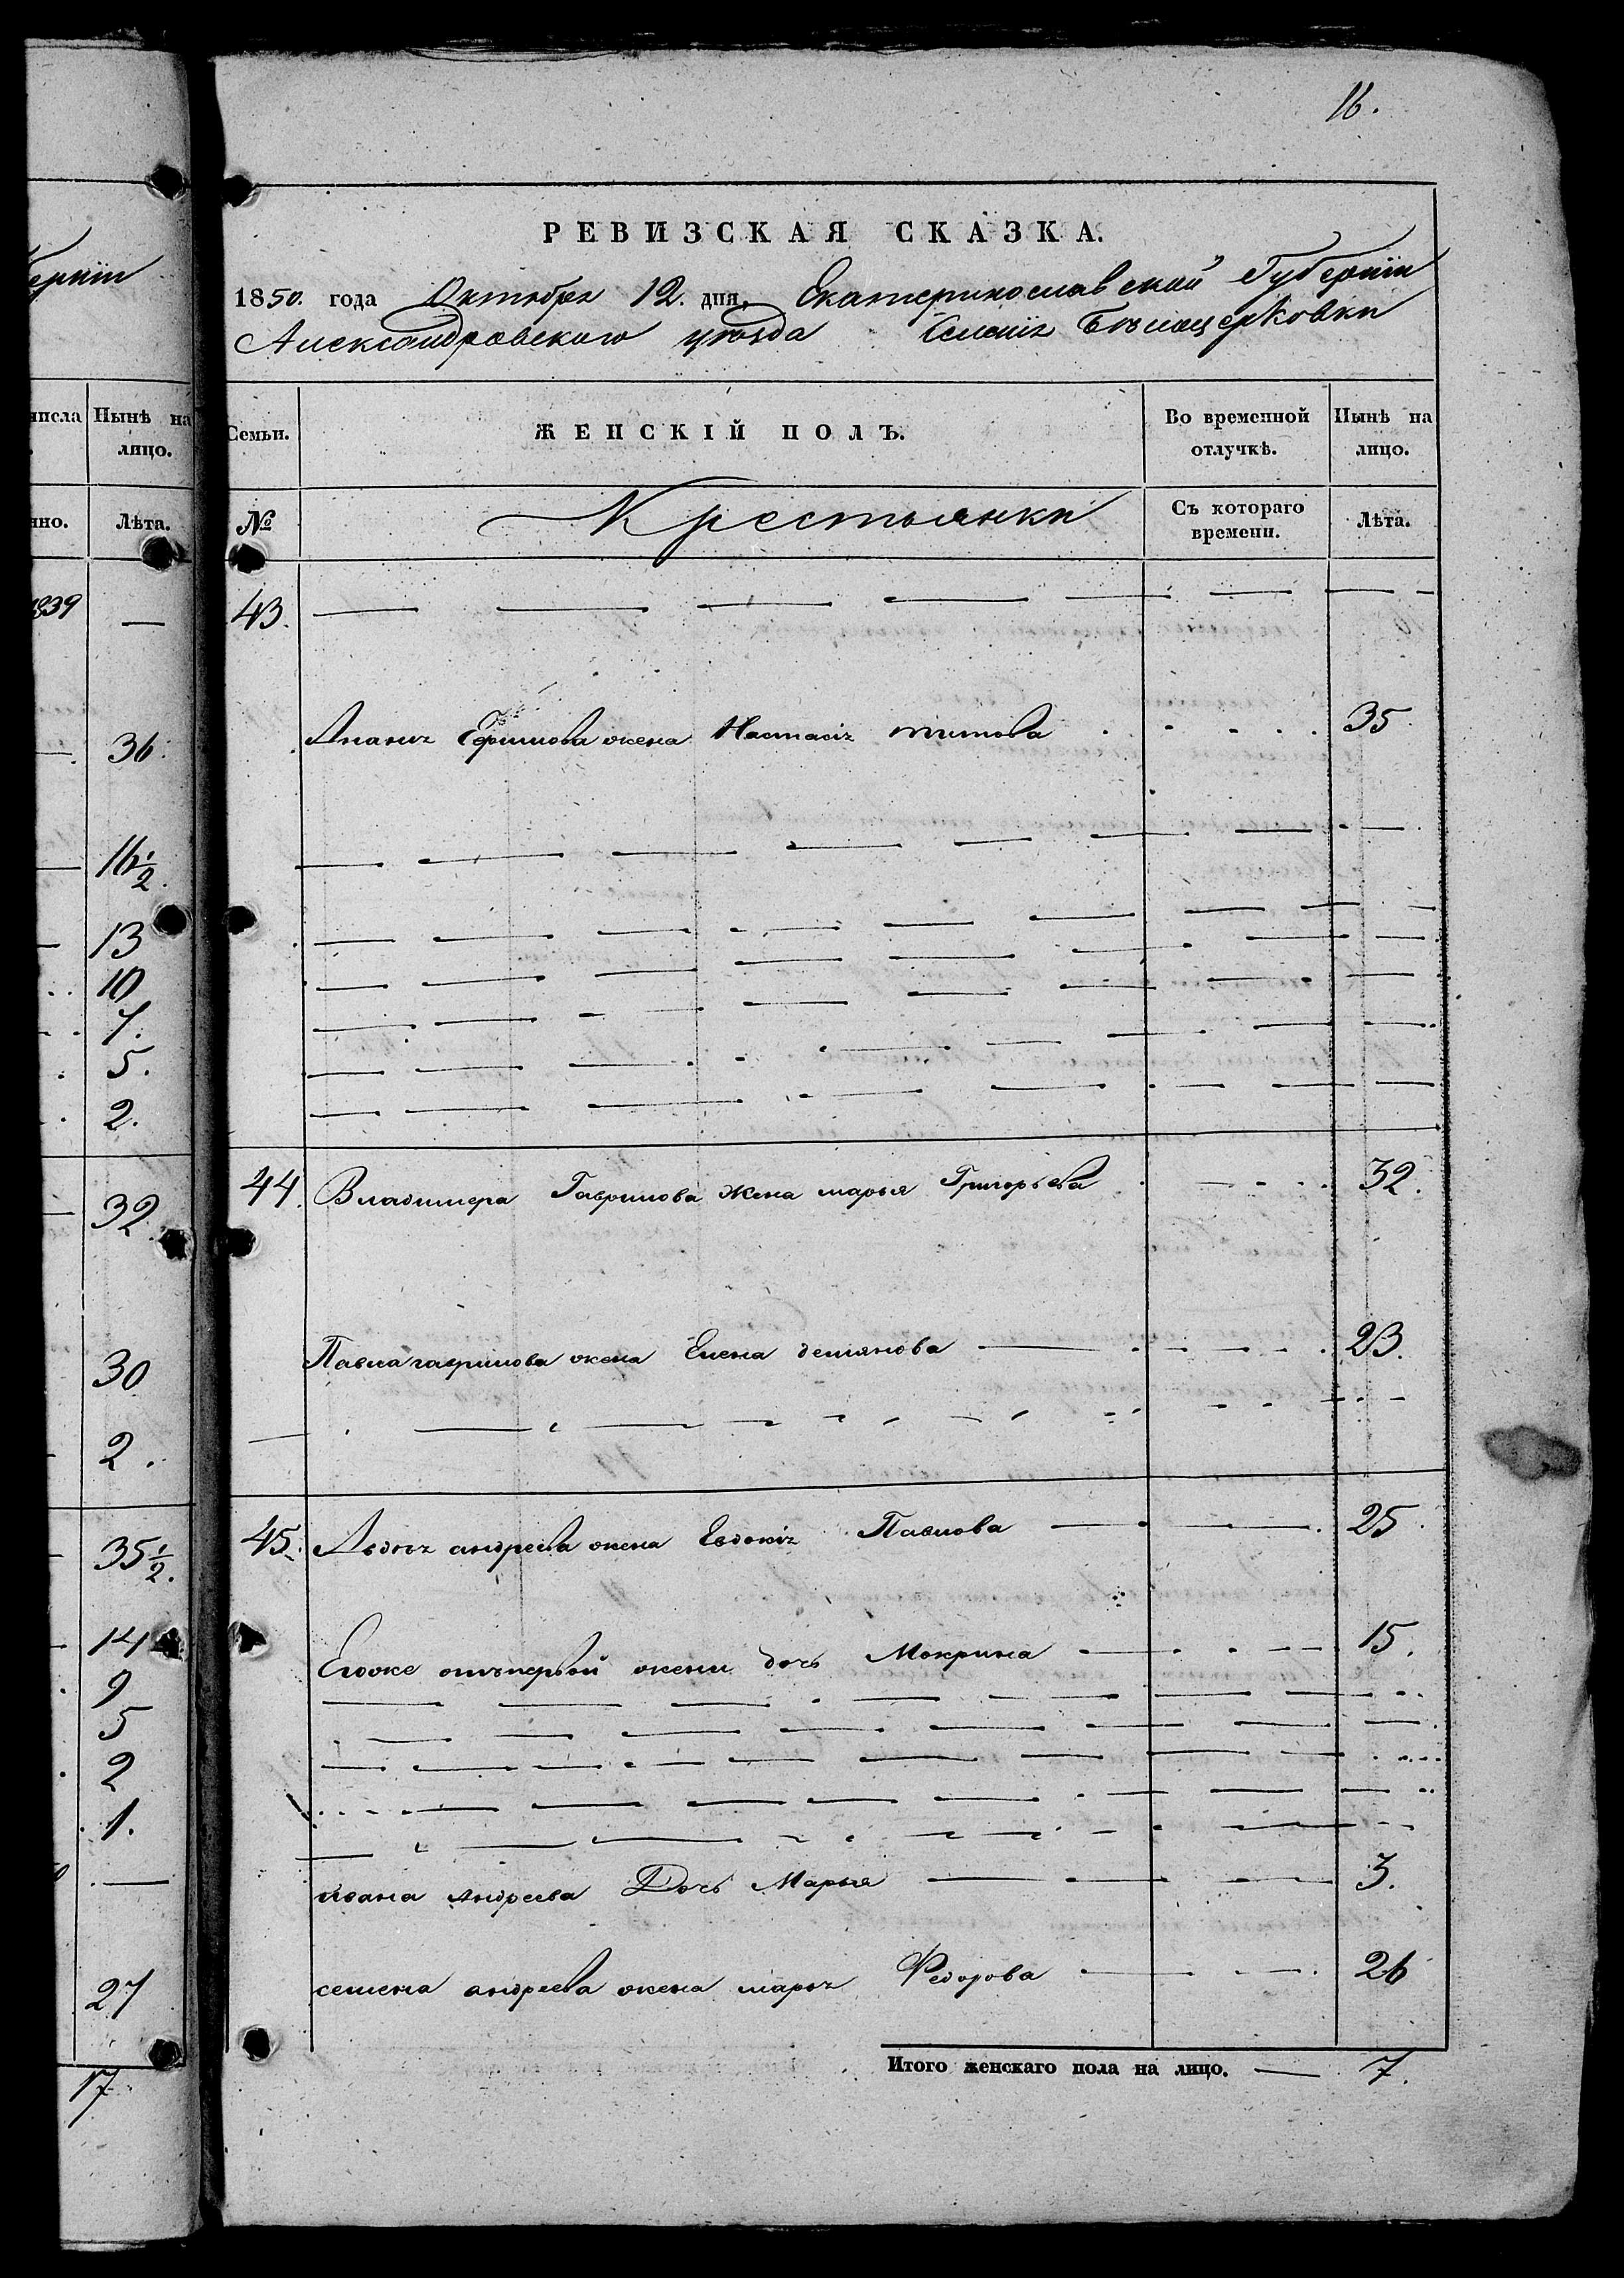 16.
РЕВИЗСКАЯ СКАЗКА.
1850. года Октября 12. дня, Екатеринославской Губернии
Александровского уезда Селения Белоцерковки
числа Нынѣ на лицо.
Семьи. ЖЕНСКІЙ ПОЛЪ. Во временной отлучкѣ. Нынѣ на лицо.
Лѣта.
№ Крестьянки Съ котораго времени. Лѣта.
1839 —
43. — — — — — — — —
36.
Анания Ефимова жена Настасія Титова 35
16 1/2
13
10
7.
5.
2.
32
44. Владимера Гаврилова жена марья Григорьева 32.
30
Павла гаврилова жена Елена демянова — 23.
2.
35 1/2.
45. Авдѣя андреева жена Евдокія Павлова — 25
14
Егоже отъпервой жены дочь Мокрина — 15.
9
5
2
1.
—
ивана Андреева Дочь Марья — 3.
27
семена андреева жена марья Федорова — 26
17
Итого женскаго пола на лицо. — 7.